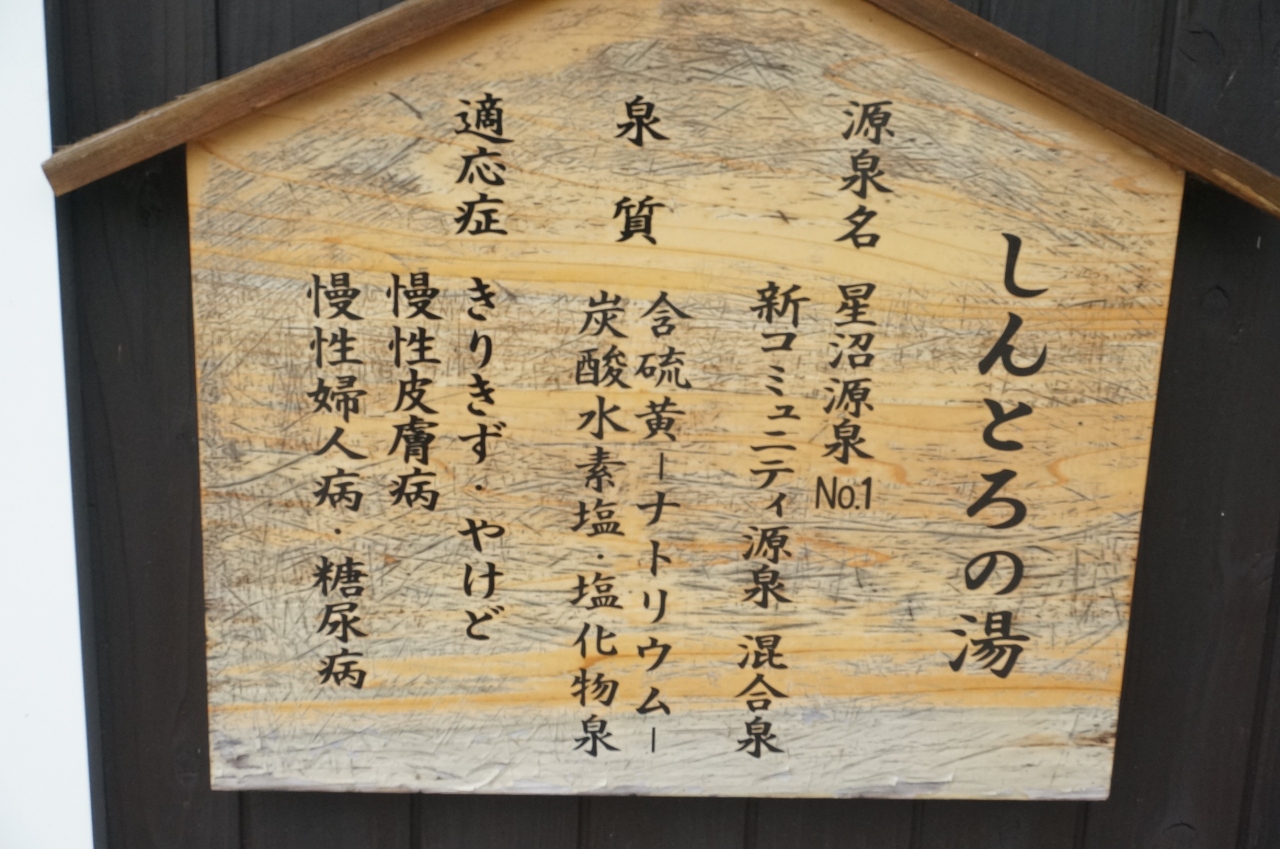 しんとろの湯
源泉名 星沼源泉 No.1
新コミュニティ源泉 混合泉
泉質 含硫黄ーナトリウムー
炭酸水素塩・塩化物泉
適応症 きりきず・やけど
慢性皮膚病
慢性婦人病・糖尿病